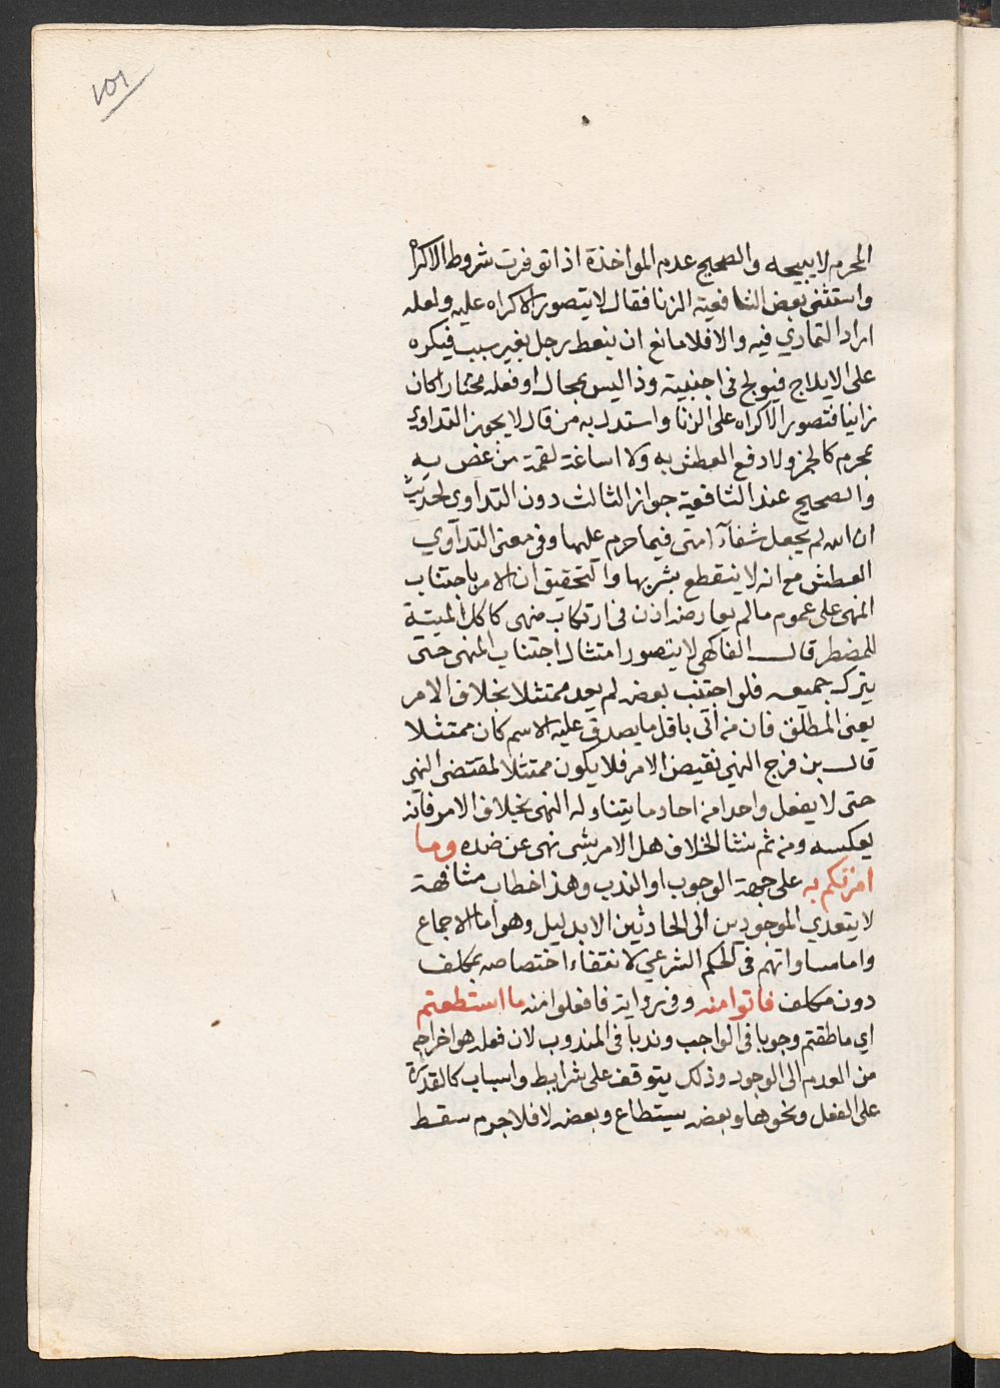 ١٥١
المحرم لا يبيحه والصحيح عدم المواخذة اذا توفرت شروط الاكراه
واستثنى بعض الشافعية الزنا فقال لا يتصور الاكراه عليه ولعله
اراد التمادي فيه والا فلا مانع ان ينعظ رجل بغير سبب فيكره
على الايلاج فيولج فى اجنبية وذا ليس بمحال او فعله مختارا كان
زانيا فتصور الاكراه على الزنا واستدل به من قال لا يجوز التداوي
بمحرم كالخمر ولا دفع العطش به ولا اساغة لقمة من غص به
والصحيح عند الشافعية جواز الثالث دون التداوي لحديث
ان الله لم يجعل شفآء امتى فيما حرم عليها وفى معنى التدآوي
العطش مع انه لا ينقطع بشربها والتحقيق ان الامر باجتناب
المنهى على عمومه مالم يعارضه اذن فى ارتكاب منهى كاكل الميتة
للمضطر قال الفاكهى لا يتصور امتثال اجتناب المنهى حتى
يترك جميعه فلو اجتنب بعضه لم يعد ممتثلا بخلاف الامر
يعنى المطلق فان من أتى باقل ما يصدق عليه الاسم كان ممتثلا
قال بن فرج النهي نقيض الامر فلا يكون ممتثلا لمقتضى النهى
حتى لا يفعل واحدا من احاد ما يتناوله النهى بخلاف الامر فانه
يعكسه ومن ثم نشا الخلاف هل الامر بشى نهى عن ضده وما
امرتكم به على جهة الوجوب او الندب وهذا خطاب مشافهة
لا يتعدي الموجودين الى الحادثين الا بدليل وهو اما الاجماع
واما مساواتهم فى الحكم الشرعي لانتفاء اختصاصه بمكلف
دون مكلف فاتوا منه وفى رواية فافعلوا منه ما استطعتم
اي ما طقتم وجوبا فى الواجب وندبا فى المندوب لان فعله هو اخراجه
من العدم الى الوجود وذلك يتوقف على شرايط واسباب كالقدرة
على الفعل ونحوها وبعضه يستطاع وبعضه لا فلا جرم سقط